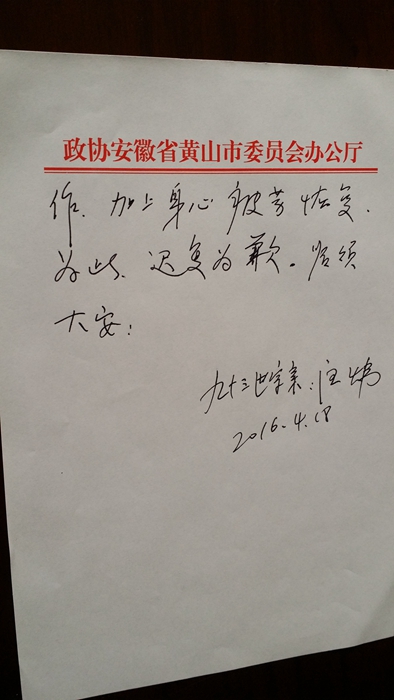 政协安徽省黄山市委员会办公厅
作、加上身心疲劳恢复、
为此、迟复为歉。皆颂
大安:
九十三世宗亲:汪炜
2016.4.18